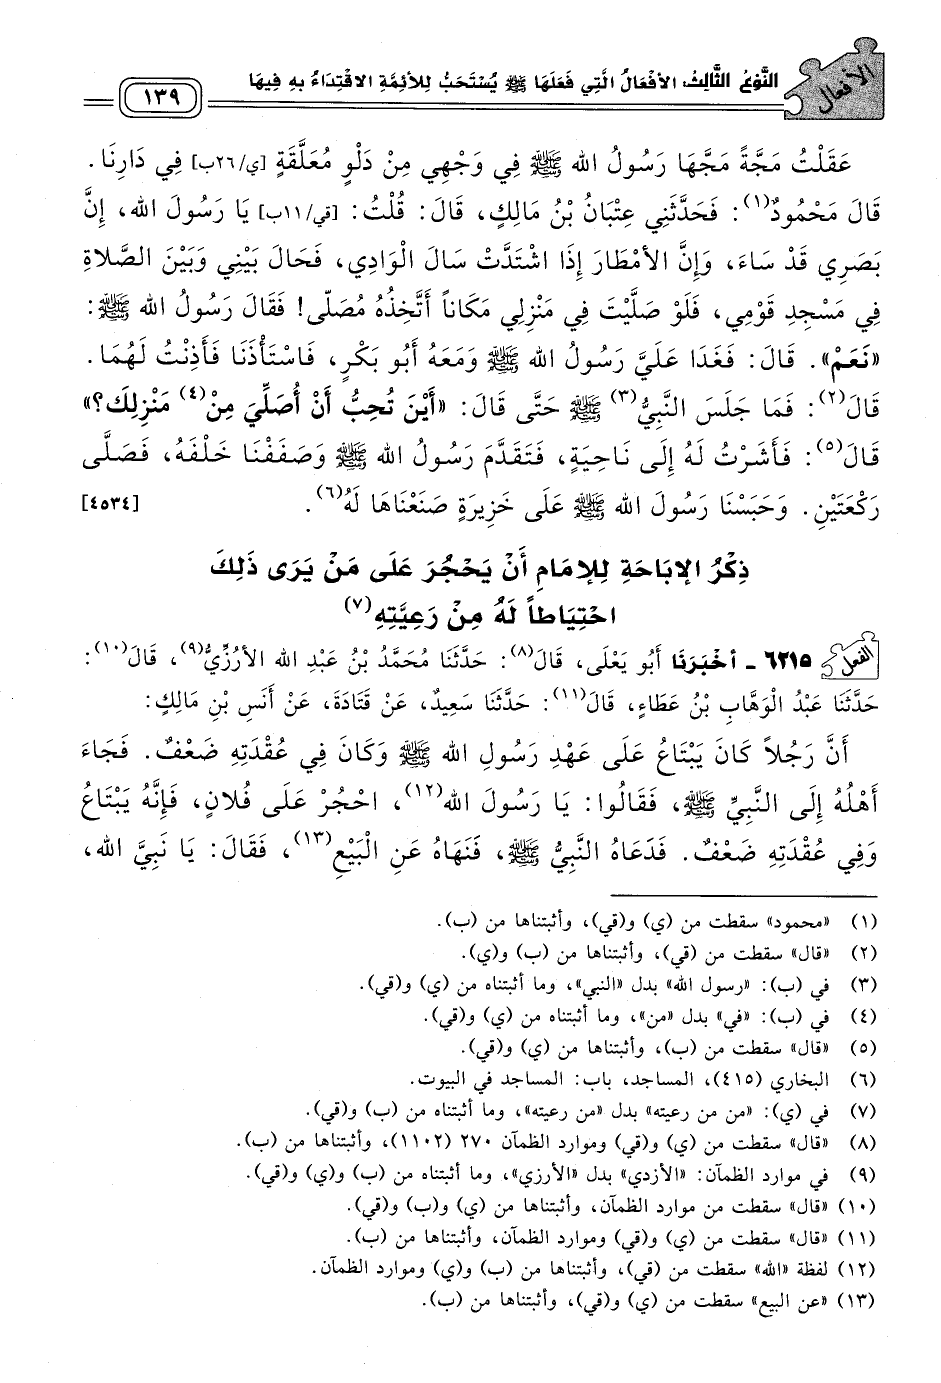 الأفعال
النَّوْعُ الثَّالِثُ: الأَفْعَالُ الَّتِي فَعَلَهَا ﷺ يُسْتَحَبُّ لِلأَئِمَّةِ الاقْتِدَاءُ بِهِ فِيهَا
١٣٩
عَقَلْتُ مَجَّةً مَجَّهَا رَسُولُ الله ﷺ فِي وَجْهِي مِنْ دَلْوٍ مُعَلَّقَةٍ [ي/٢٦ب] فِي دَارِنَا.
قَالَ مَحْمُودٌ(١): فَحَدَّثَنِي عِتْبَانُ بْنُ مَالِكٍ، قَالَ: قُلْتُ: [قي/١١ب] يَا رَسُولَ الله، إِنَّ
بَصَرِي قَدْ سَاءَ، وَإِنَّ الأَمْطَارَ إِذَا اشْتَدَّتْ سَالَ الْوَادِي، فَحَالَ بَيْنِي وَبَيْنَ الصَّلاةِ
فِي مَسْجِدِ قَوْمِي، فَلَوْ صَلَّيْتَ فِي مَنْزِلِي مَكَاناً أَتَّخِذُهُ مُصَلّى! فَقَالَ رَسُولُ الله ﷺ:
«نَعَمْ». قَالَ: فَغَدَا عَلَيَّ رَسُولُ الله ﷺ وَمَعَهُ أَبُو بَكْرٍ، فَاسْتَأْذَنَا فَأَذِنْتُ لَهُمَا.
قَالَ(٢): فَمَا جَلَسَ النَّبِيُّ(٣) ﷺ حَتَّى قَالَ: «أَيْنَ تُحِبُّ أَنْ أُصَلِّيَ مِنْ(٤) مَنْزِلِكَ؟»
قَالَ(٥): فَأَشَرْتُ لَهُ إِلَى نَاحِيَةٍ، فَتَقَدَّمَ رَسُولُ الله ﷺ وَصَفَفْنَا خَلْفَهُ، فَصَلَّى
رَكْعَتَيْنِ. وَحَبَسْنَا رَسُولَ الله ﷺ عَلَى خَزِيرَةٍ صَنَعْنَاهَا لَهُ(٦). [٤٥٣٤]
ذِكْرُ الإِبَاحَةِ لِلإِمَامِ أَنْ يَحْجُرَ عَلَى مَنْ يَرَى ذَلِكَ
احْتِيَاطاً لَهُ مِنْ رَعِيَّتِهِ(٧)
الفعل ٦٢١٥ - أَخْبَرَنَا أَبُو يَعْلَى، قَالَ(٨): حَدَّثَنَا مُحَمَّدُ بْنُ عَبْدِ الله الأَرُزِّيُّ(٩)، قَالَ(١٠):
حَدَّثَنَا عَبْدُ الْوَهَّابِ بْنُ عَطَاءٍ، قَالَ(١١): حَدَّثَنَا سَعِيدٌ، عَنْ قَتَادَةَ، عَنْ أَنَسِ بْنِ مَالِكٍ:
أَنَّ رَجُلاً كَانَ يَبْتَاعُ عَلَى عَهْدِ رَسُولِ الله ﷺ وَكَانَ فِي عُقْدَتِهِ ضَعْفٌ. فَجَاءَ
أَهْلُهُ إِلَى النَّبِيِّ ﷺ، فَقَالُوا: يَا رَسُولَ الله(١٢)، احْجُرْ عَلَى فُلانٍ، فَإِنَّهُ يَبْتَاعُ
وَفِي عُقْدَتِهِ ضَعْفٌ. فَدَعَاهُ النَّبِيُّ ﷺ، فَنَهَاهُ عَنِ الْبَيْعِ(١٣)، فَقَالَ: يَا نَبِيَّ الله،
(١) «محمود» سقطت من (ي) و(قي)، وأثبتناها من (ب).
(٢) «قال» سقطت من (قي)، وأثبتناها من (ب) و(ي).
(٣) في (ب): «رسول الله» بدل «النبي»، وما أثبتناه من (ي) و(قي).
(٤) في (ب): «في» بدل «من»، وما أثبتناه من (ي) و(قي).
(٥) «قال» سقطت من (ب)، وأثبتناها من (ي) و(قي).
(٦) البخاري (٤١٥)، المساجد، باب: المساجد في البيوت.
(٧) في (ي): «من من رعيته» بدل «من رعيته»، وما أثبتناه من (ب) و(قي).
(٨) «قال» سقطت من (ي) و(قي) وموارد الظمآن ٢٧٠ (١١٠٢)، وأثبتناها من (ب).
(٩) في موارد الظمآن: «الأزدي» بدل «الأرزي»، وما أثبتناه من (ب) و(ي) و(قي).
(١٠) «قال» سقطت من موارد الظمآن، وأثبتناها من (ي) و(ب) و(قي).
(١١) «قال» سقطت من (ي) و(قي) وموارد الظمآن، وأثبتناها من (ب).
(١٢) لفظة «الله» سقطت من (قي)، وأثبتناها من (ب) و(ي) وموارد الظمآن.
(١٣) «عن البيع» سقطت من (ي) و(قي)، وأثبتناها من (ب).